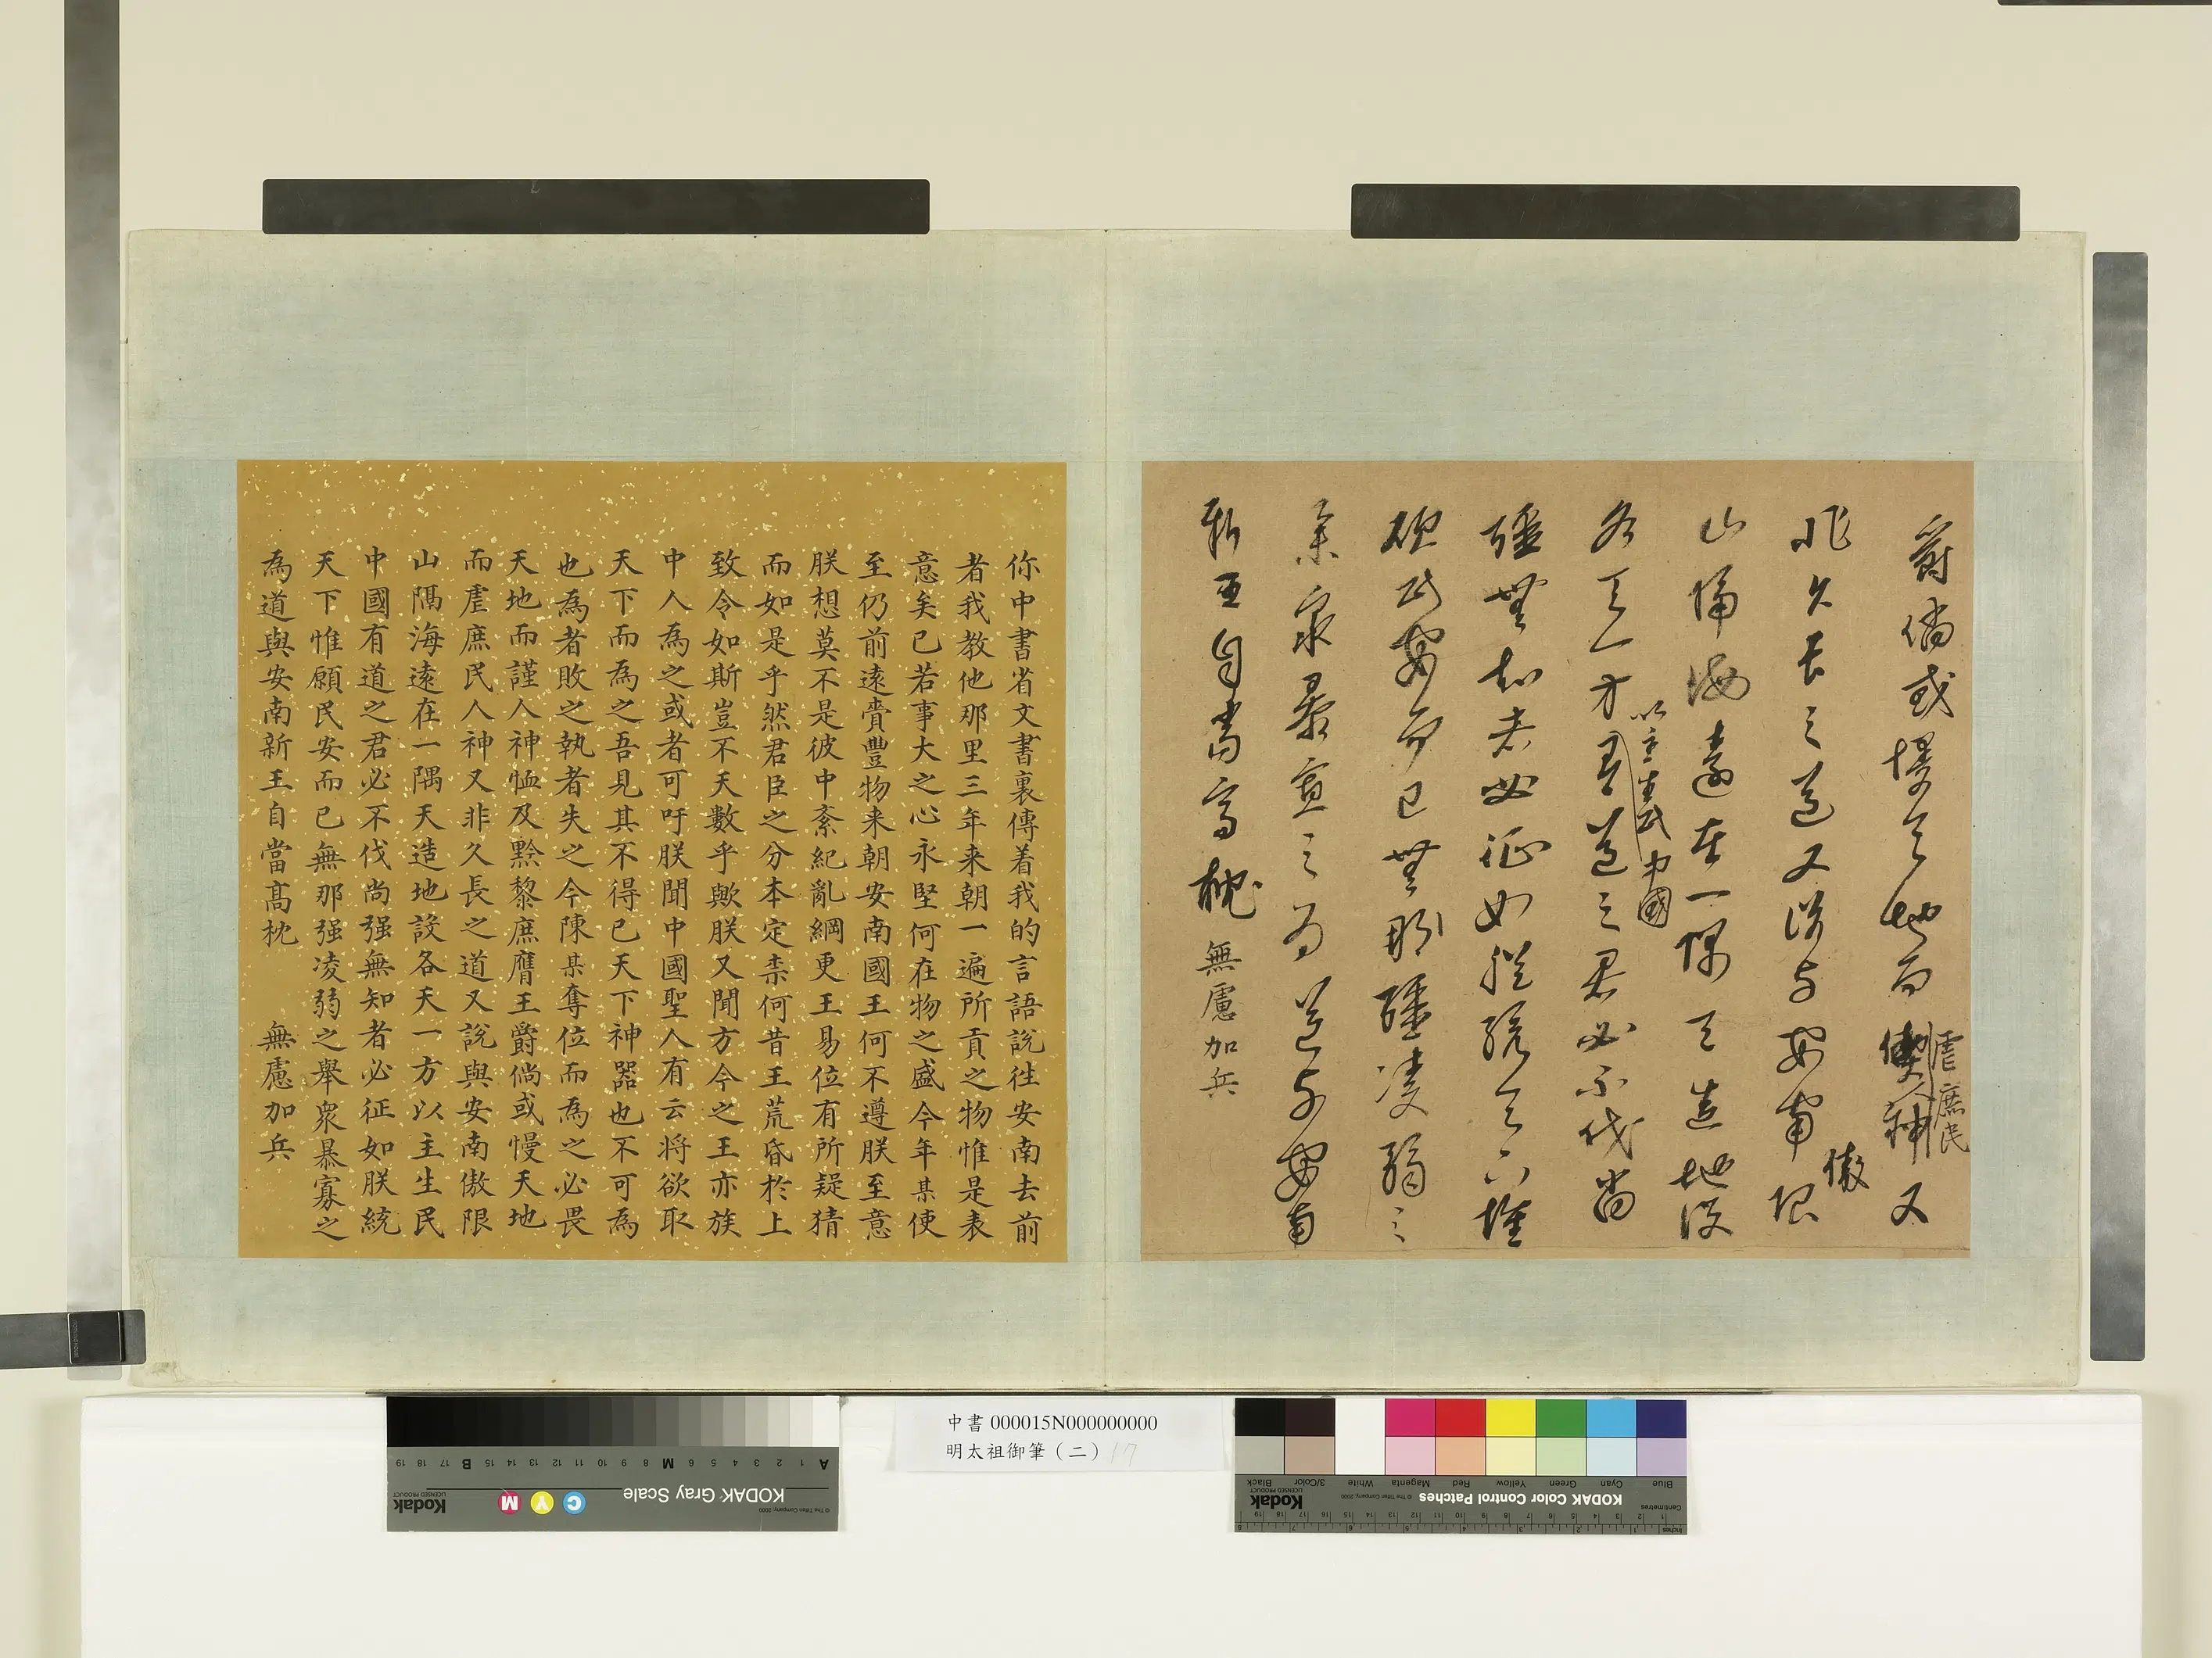 爵倘或慢天地而虐庶民人神又
非久長之道又説与安南傲限
山隅海遠在一隅天造地設
各天一方以主生民中國有道之君必不伐尚
彊無知者必征如朕統天下惟
願民安而已無那彊凌弱之
舉衆暴寡之為道与安南
新王自當高枕無慮加兵
你中書省文書裏傳着我的言語說徃安南去前
者我教他那里三年来朝一遍所貢之物惟是表
意矣已若事大之心永堅何在物之盛今年某使
至仍前遠賫豐物来朝安南國王何不遵朕至意
朕想莫不是彼中紊紀亂綱更王易位有所疑猜
而如是乎然君臣之分本定柰何昔王荒昏於上
致令如斯豈不天數乎歟朕又聞方今之王亦族
中人為之或者可吁朕聞中國聖人有云将欲取
天下而為之吾見其不得已天下神器也不可為
也為者敗之執者失之今陳某奪位而為之必畏
天地而謹人神恤及黔黎庶膺王爵倘或慢天地
而虐庶民人神又非久長之道又説與安南傲限
山隅海遠在一隅天造地設各天一方以主生民
中國有道之君必不伐尚强無知者必征如朕統
天下惟願民安而已無那强凌弱之舉衆暴寡之
為道與安南新王自當髙枕 無慮加兵
中書 000015N000000000
明太祖御筆（二）17
KODAK Gray Scale
Kodak
LICENSED PRODUCT
© The Tiffen Company, 2000
C Y M
A 1 2 3 4 5 6 M 8 9 10 11 12 13 14 15 B 17 18 19
KODAK Color Control Patches
Kodak
LICENSED PRODUCT
© The Tiffen Company, 2000
Blue Cyan Green Yellow Red Magenta White 3/Color Black
Centimetres
Inches